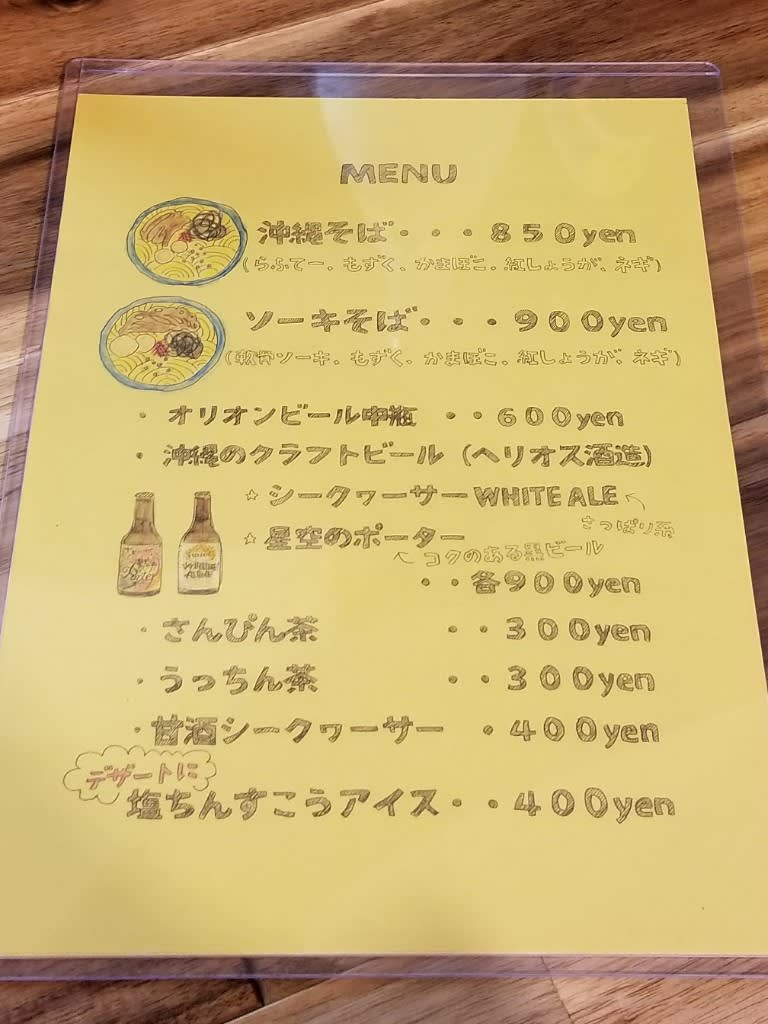 MENU
沖縄そば・・・850yen
(らふてー、もずく、かまぼこ、紅しょうが、ネギ)
ソーキそば・・・900yen
(軟骨ソーキ、もずく、かまぼこ、紅しょうが、ネギ)
・オリオンビール中瓶 ・・600yen
・沖縄のクラフトビール (ヘリオス酒造)
☆シークヮーサーWHITE ALE
さっぱり系
☆星空のポーター
コクのある黒ビール
・・各900yen
Porter
WHITE ALE
・さんぴん茶 ・・300yen
・うっちん茶 ・・300yen
・甘酒シークヮーサー ・400yen
デザートに
塩ちんすこうアイス・・400yen